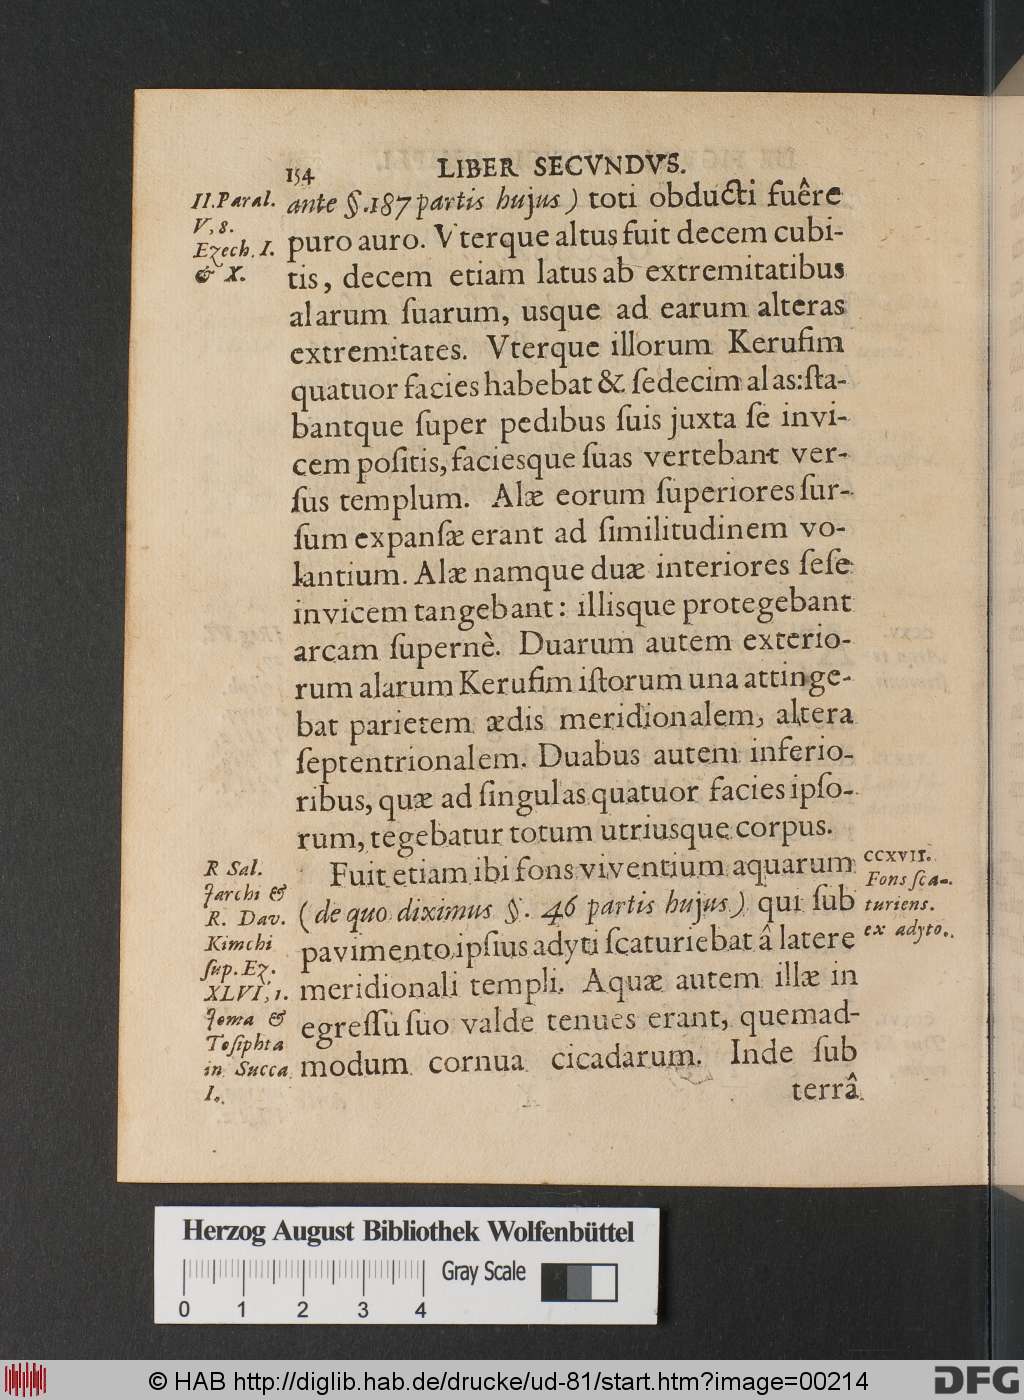 154 LIBER SECVNDVS.
II. Paral.
V, 8.
Ezech. I.
& X.
ante §. 187 partis hujus) toti obducti fuêre
puro auro. Vterque altus fuit decem cubi-
tis, decem etiam latus ab extremitatibus
alarum ſuarum, usque ad earum alteras
extremitates. Vterque illorum Keruſim
quatuor facies habebat & ſedecim alas: ſta-
bantque ſuper pedibus ſuis juxta ſe invi-
cem poſitis, faciesque ſuas vertebant ver-
ſus templum. Alæ eorum ſuperiores ſur-
ſum expanſæ erant ad ſimilitudinem vo-
lantium. Alæ namque duæ interiores ſeſe
invicem tangebant: illisque protegebant
arcam ſupernè. Duarum autem exterio-
rum alarum Keruſim iſtorum una attinge-
bat parietem ædis meridionalem, altera
ſeptentrionalem. Duabus autem inferio-
ribus, quæ ad ſingulas quatuor facies ipſo-
rum, tegebatur totum utriusque corpus.
R Sal.
Jarchi &
R. Dav.
Kimchi
ſup. Ez.
XLVI, 1.
Joma &
Toſiphta
in Succa
I.
Fuit etiam ibi fons viventium aquarum
(de quo diximus §. 46 partis hujus) qui ſub
pavimento ipſius adyti ſcaturiebat â latere
meridionali templi. Aquæ autem illæ in
egreſſu ſuo valde tenues erant, quemad-
modum cornua cicadarum. Inde ſub
terrâ
CCXVII.
Fons ſca-
turiens
ex adyto.
Herzog August Bibliothek Wolfenbüttel
Gray Scale
0 1 2 3 4
© HAB http://diglib.hab.de/drucke/ud-81/start.htm?image=00214
DFG